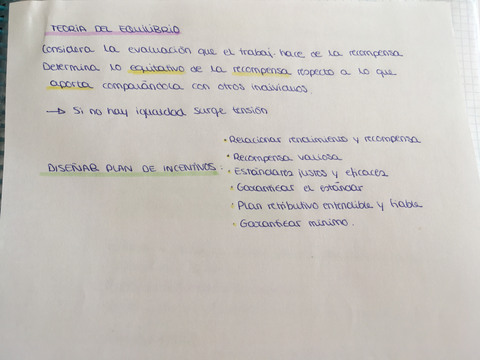 TEORIA DEL EQUILIBRIO
Considera la evaluación que el trabaj. hace de la recompensa
Determina lo equitativo de la recompensa respecto a lo que
aporta comparándola con otros individuos.
→ Si no hay igualdad surge tensión
• Relacionar rendimiento y recompensa
• Recompensa valiosa
DISEÑAR PLAN DE INCENTIVOS: • Estándares justos y eficaces
• Garantizar el estándar
• Plan retributivo entendible y fiable
• Garantizar mínimo.